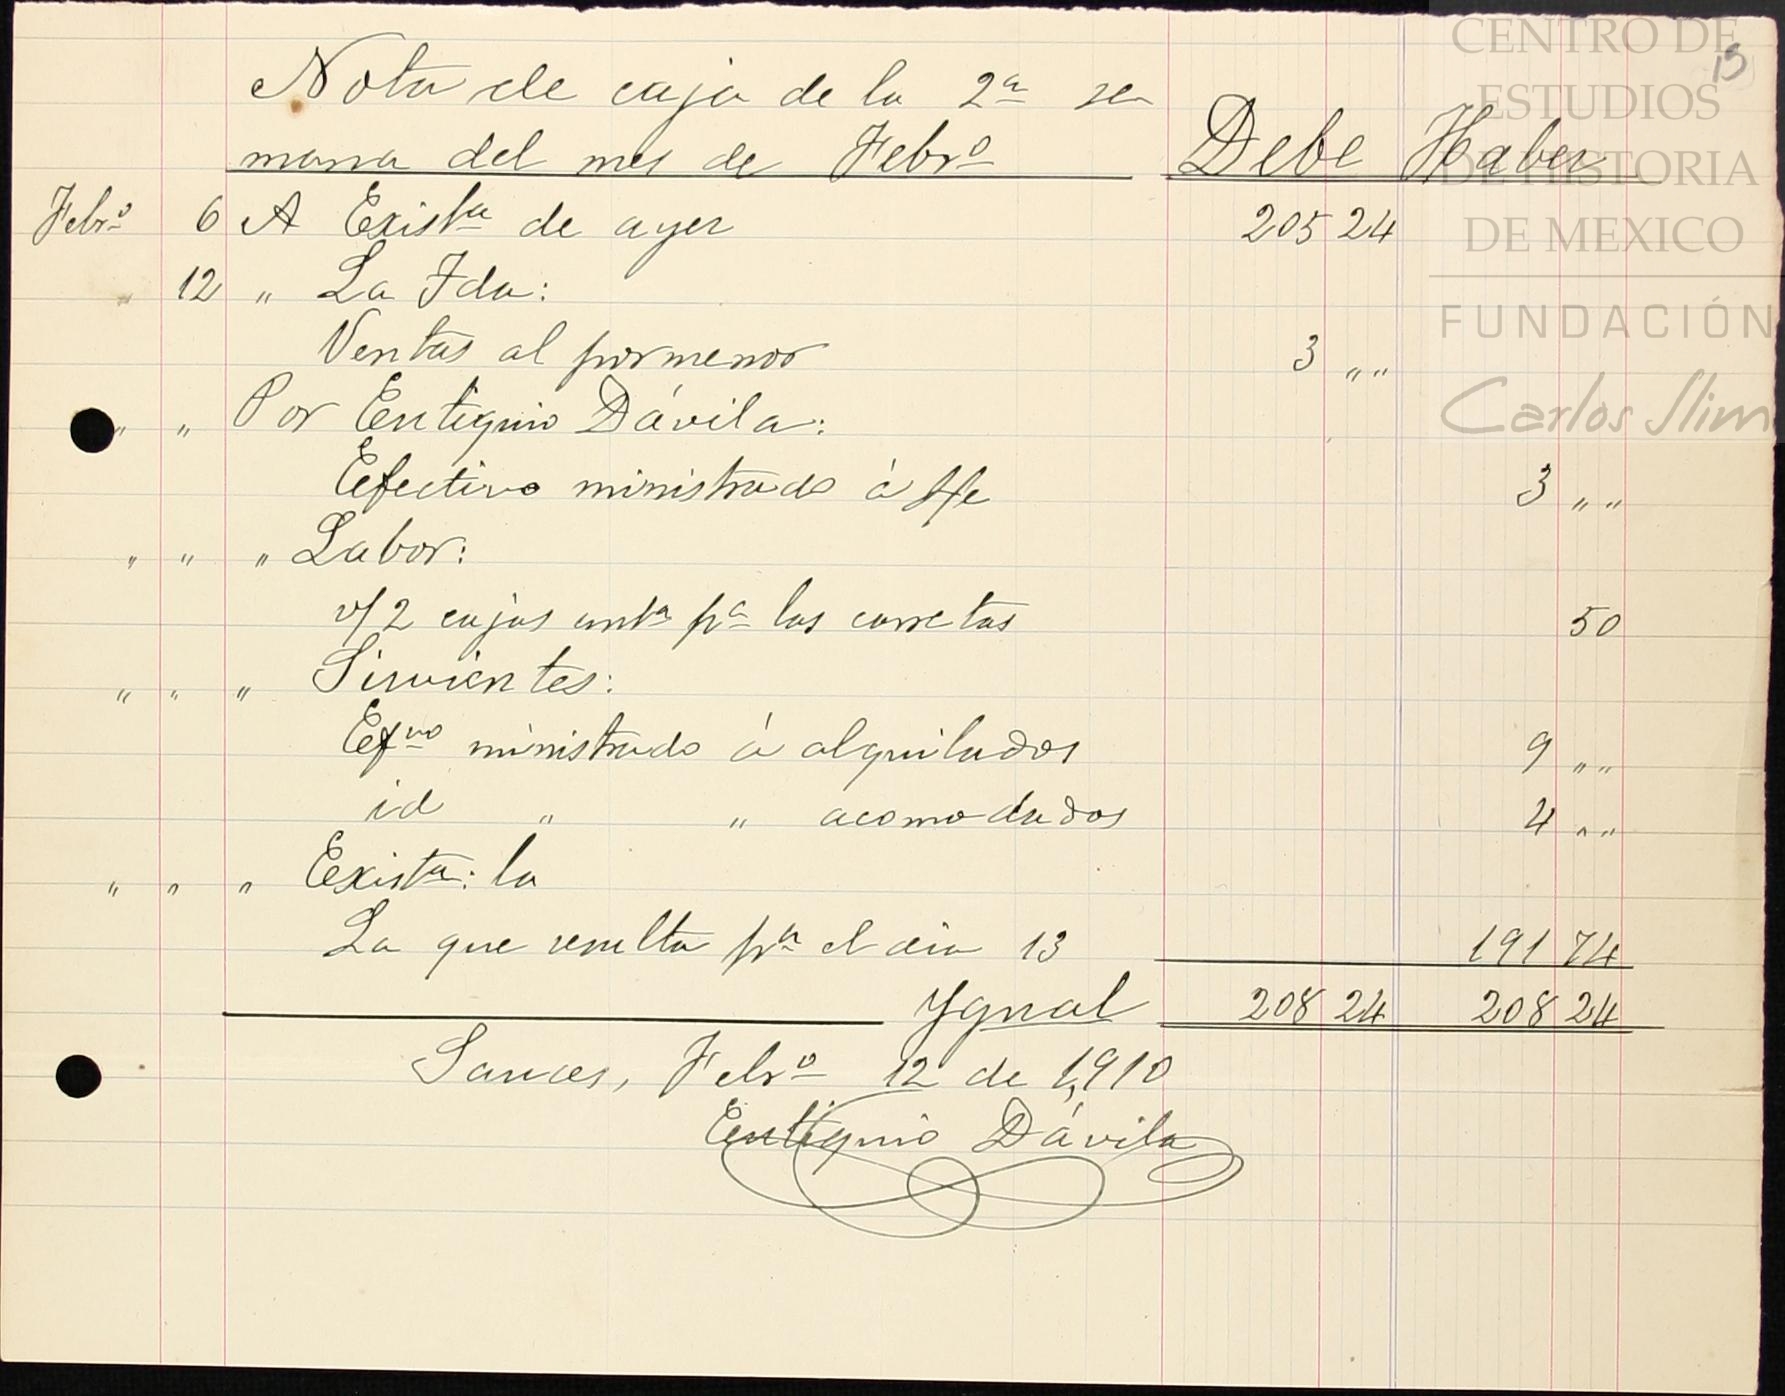 CENTRO DE
ESTUDIOS
DE HISTORIA
DE MEXICO
FUNDACIÓN
Carlos Slim
Nota de caja de la 2ª se
mana del mes de Febrº Debe Haber
Febrº 6 A Existª de ayer 205 24
" 12 " La Fda:
Ventas al pormenor 3 " "
" " Por Eutiquio Dávila:
Efectivo ministrado á 3 " "
" " " Labor:
v/ 2 cajas untª pª las carretas 50
" " " Sirvientes:
Efvo ministrado á alquilados 9 " "
id " " acomodados 4 " "
" " " Existª: la
La que resulta pª el dia 13 191 74
Ygual 208 24 208 24
Sauces, Febrº 12 de 1,910
Eutiquio Dávila